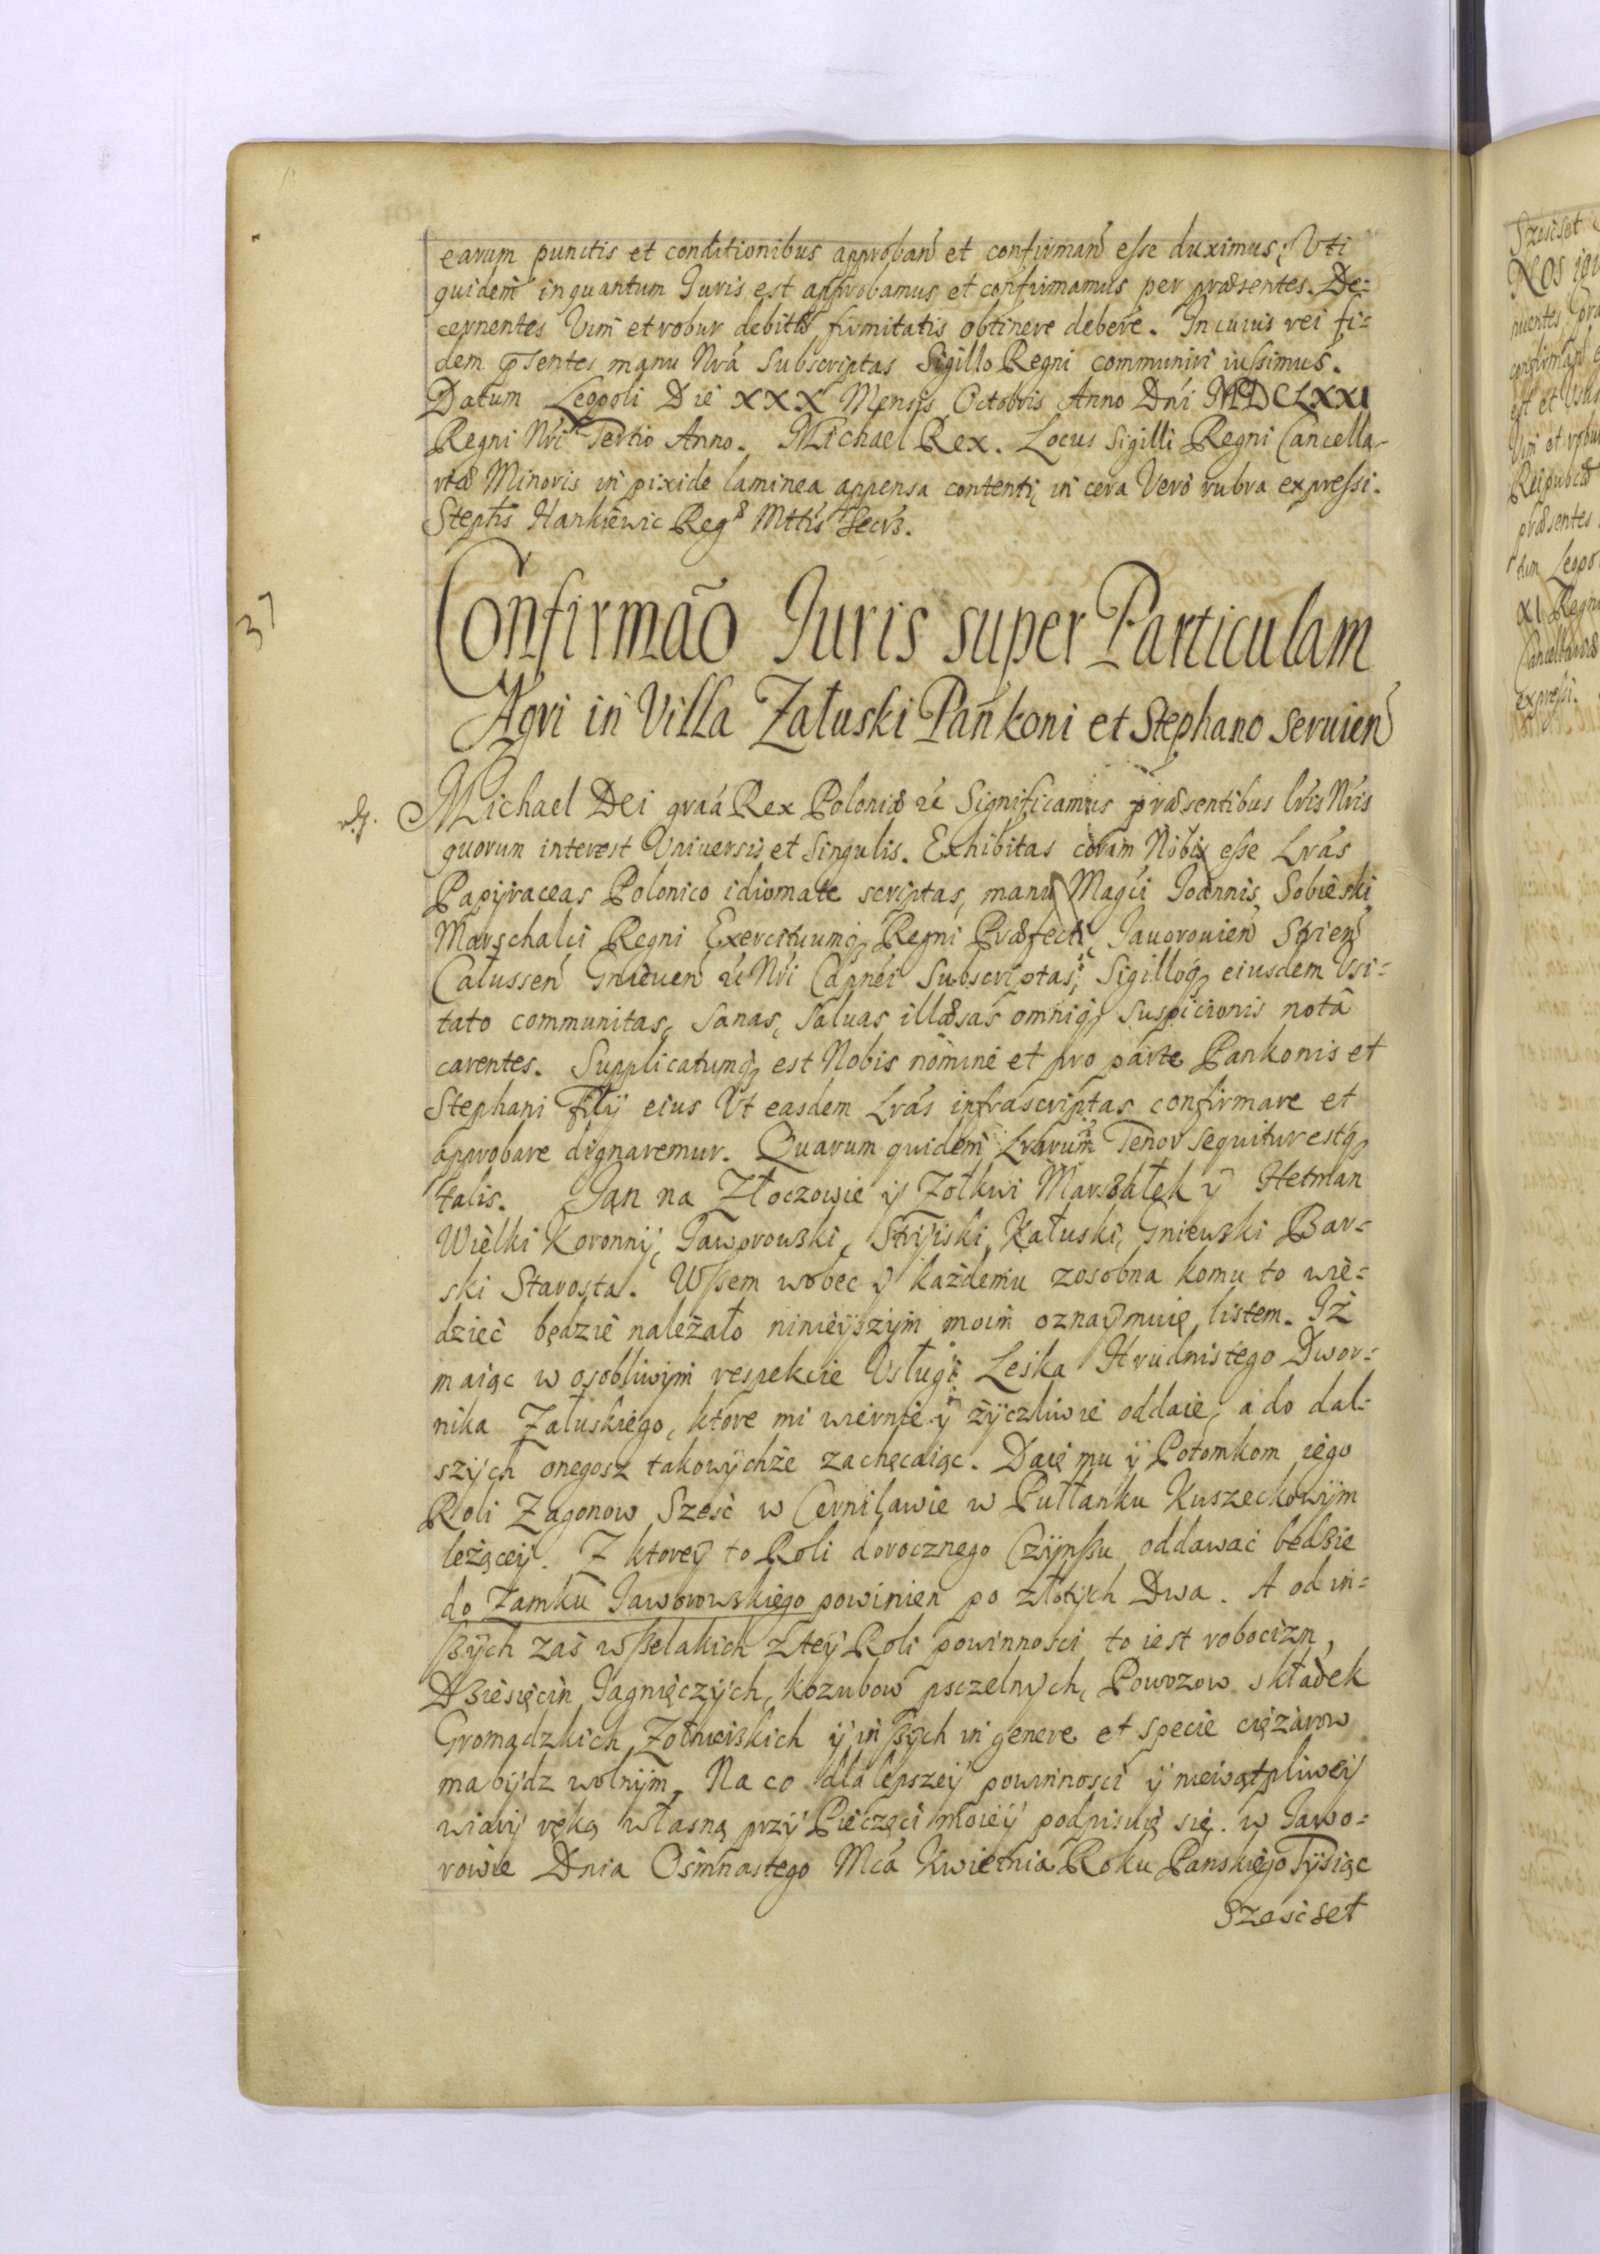 earum punctis et conditionibus approband et confirmand esse duximus; Uti
quidem inquantum Juris est approbamus et confirmamus per præsentes. De=
cernentes Vim et robur debitæ firmitatis obtinere debere. In cuius rei fi=
dem pñtes manu Nrã subscriptas Sigillo Regni communiri iussimus.
Datum Leopoli Die XXX Mensis Octobris Anno Dni MDCLXXI
Regni Nri Tertio Anno. Michael Rex. Locus Sigilli Regni Cancella-
riæ Minoris in pixide laminea appensa contenti, in cera Vero rubra expressi.
Stephs Hankiewic Regæ Mttis Secrs.
37
Confirmão Juris super Particulam
Agri in Villa Załuski Pańkoni et Stephano seruien
Michael Dei graã Rex Poloniæ &c Significamus præsentibus lris Nris
quorum interest Vniuersis et Singulis. Exhibitas coram Nobis esse Lrãs
Papÿraceas Polonico idiomate scriptas, manu Magci Joannis Sobieski
Marschalci Regni Exercituumq Regni Præfecti, Jauorouien Strien
Calussen Gnieuen &c Nri Capnei subscriptas, Sigilloq eiusdem Vsi=
tato communitas, sanas, saluas, illæsas omniq suspicionis notâ
carentes. Supplicatumq est Nobis nomine et pro parte Pankonis et
Stephani Filÿ eius Vt easdem Lrãs infrascriptas confirmare et
approbare dignaremur. Quarum quidem Lrarum Tenor sequitur estq
talis. Jan na Złoczowie ÿ Zołkwi Marszałek ÿ Hetman
Wielki Koronnÿ, Jaworowski, Strÿiski, Kałuski, Gniewski Bar=
ski Starosta. Wszem wobec ÿ każdemu zosobna komu to wie=
dzieć będzie należało ninieÿszÿm moim oznaÿmuię listem. Iż
maiąc w osobliwÿm respekcie Vsługi Leska Hrudnistego Dwor=
nika Załuskiego, ktore mi wiernie ÿ żÿczliwie oddaie, a do dal=
szÿch onegosz takowÿchże zachęcaiąc. Daię mu ÿ Potomkom iego
Roli Zagonow Szesc w Cernilawie w Pułłanku Kuszeckowÿm
leżąceÿ. Z ktoreÿ to Roli dorocznego Czÿnszu oddawać będzie
do Zamku Jaworowskiego powinien po złotÿch Dwa. A od in=
szÿch zaś wszelakich z teÿ Roli powinnosci to iest robocizn,
Dziesięcin Jagnięczÿch, kozubow pszczelnÿch, Powozow składek
Gromadzkich, Zołnierskich ÿ inszÿch in genere et specie ciężarow
ma bÿdz wolnÿm. Na co dla lepszeÿ powinnosci ÿ niewątpliweÿ
wiarÿ ręką własną przÿ Pieczęci moieÿ podpisuię się. w Jawo=
rowie Dnia Osimnastego Mca Kwietnia Roku Panskiego Tÿsiąc
Szescset